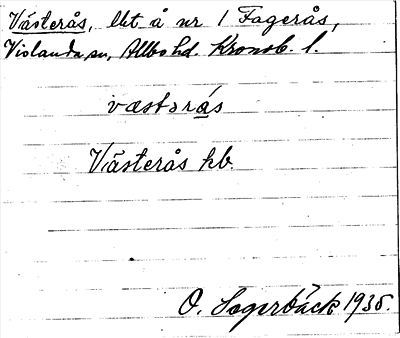 Västerås, lht å nr 1 Fagerås,
Vislanda sn, Allbo hd. Kronob. l.
væstərás
Västerås kb.
O. Sagerbäck 1935.